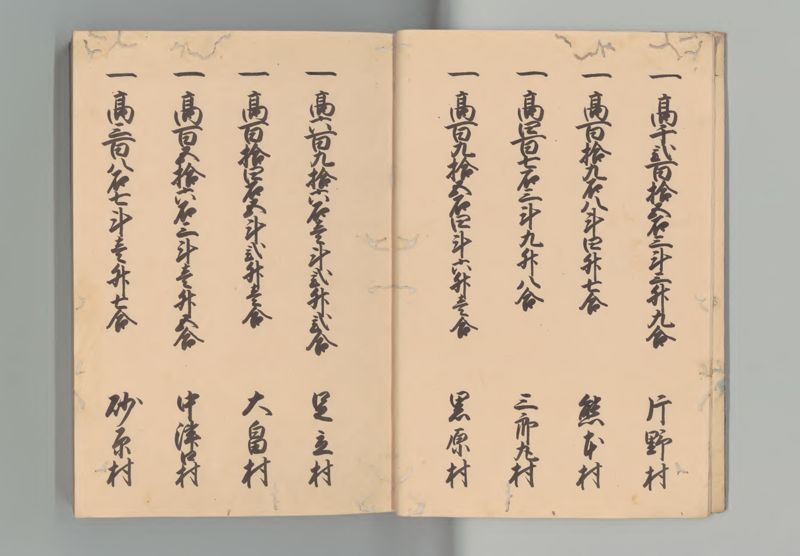 一 高千弐百拾五石三斗三升九合 片野村
一 高百拾九石八斗四升七合 熊本村
一 高四百七石三斗九升八合 三郎丸村
一 高百九拾五石四斗六升壱合 黒原村
一 高六百九拾六石壱斗弐升弐合 足立村
一 高百拾四石五斗弐升壱合 大畠村
一 高百五拾六石三斗壱升五合 中津口村
一 高三百八石七斗壱升七合 砂原村